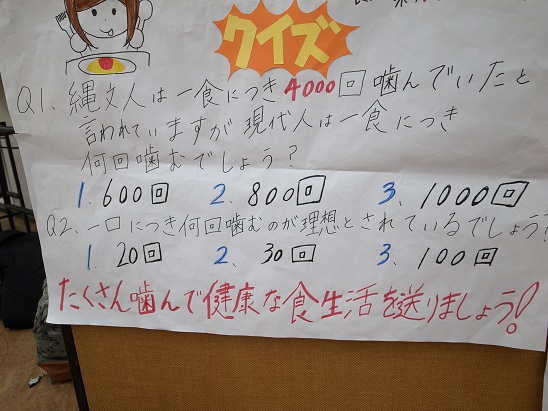 クイズ
Q1、縄文人は一食につき4000回噛んでいたと
言われていますが現代人は一食につき
何回噛むでしょう？
1、600回 2、800回 3、1000回
Q2、一口につき何回噛むのが理想とされているでしょう？
1、20回 2、30回 3、100回
たくさん噛んで健康な食生活を送りましょう！